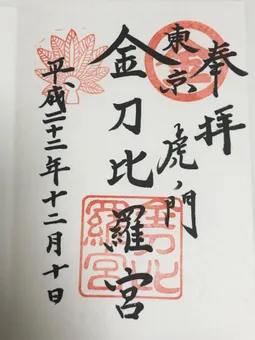 奉拝
東京
虎ノ門
金刀比羅宮
平成二十二年十二月十日
金刀比
羅宮